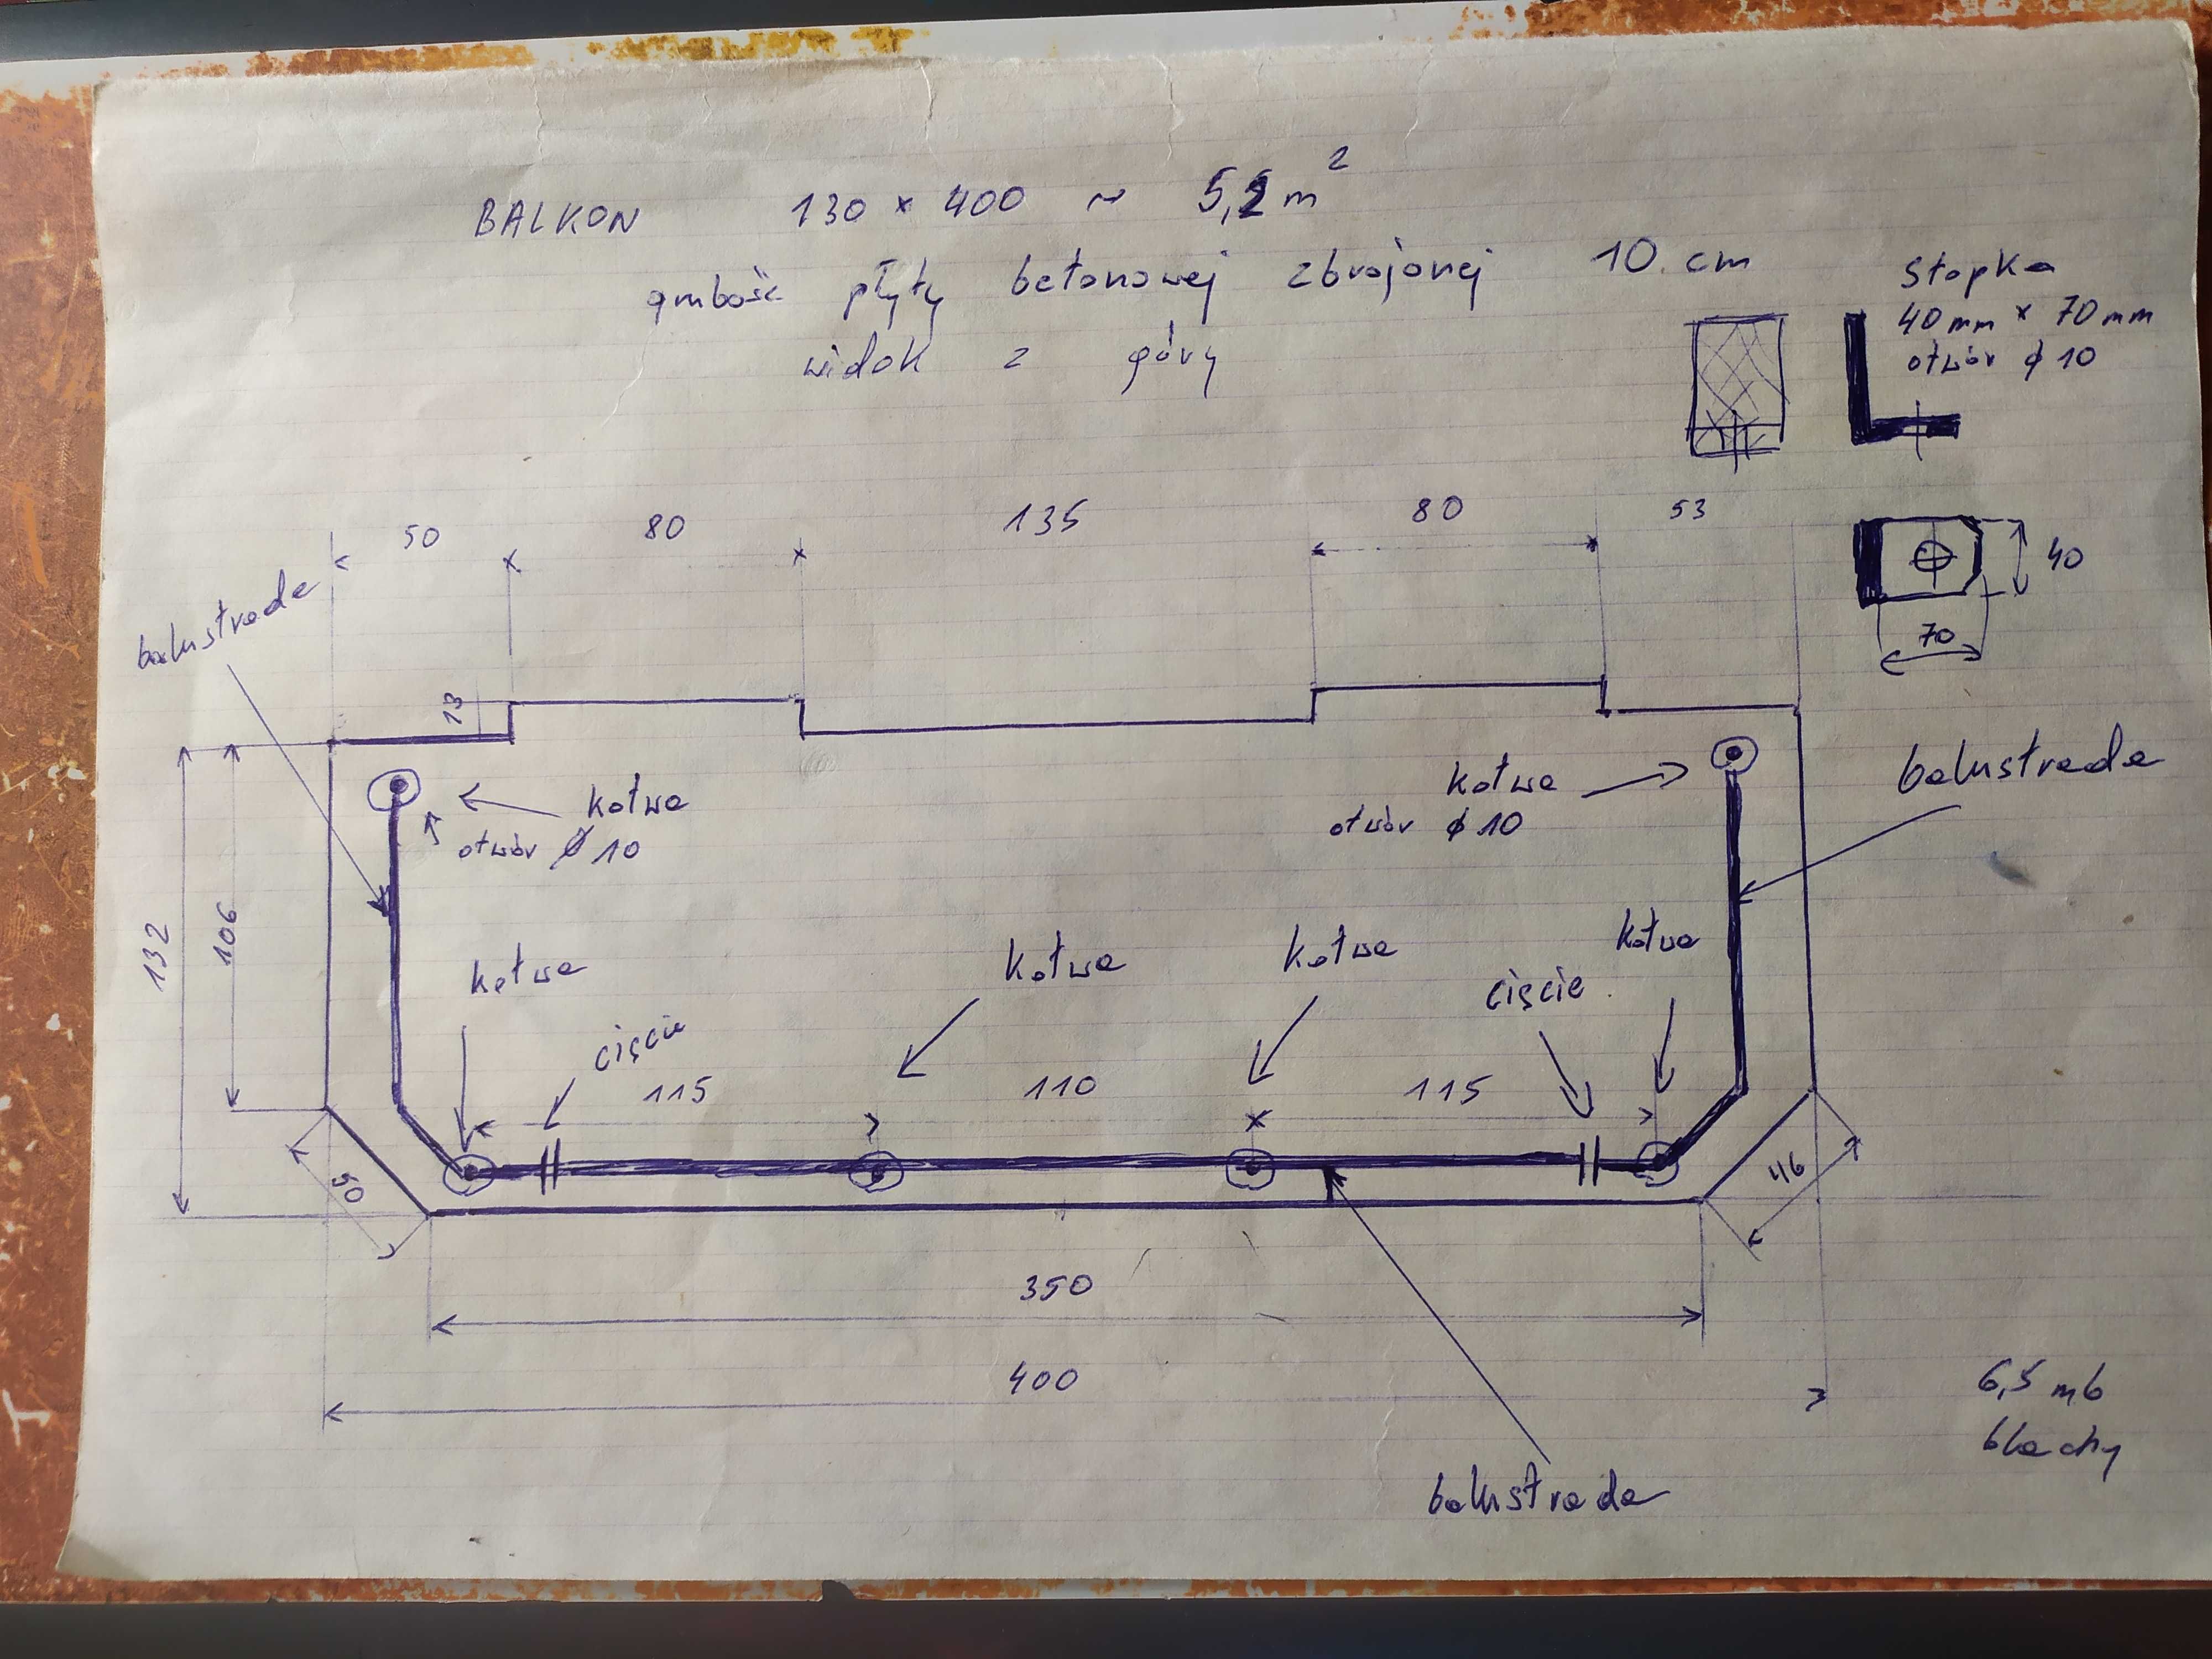 BALKON 130 x 400 ~ 5,2 m²
grubość płyty betonowej zbrojonej 10 cm
widok z góry
Stopka
40 mm x 70 mm
otwór ϕ 10
50 80 135 80 53
40
70
balustrada
13
balustrada
kotwa
otwór ϕ 10
kotwa
otwór ϕ 10
132
106
kotwa
kotwa
kotwa
kotwa
cięcie
cięcie
115 110 115
50
46
350
400
balustrada
6,5 mb
blachy